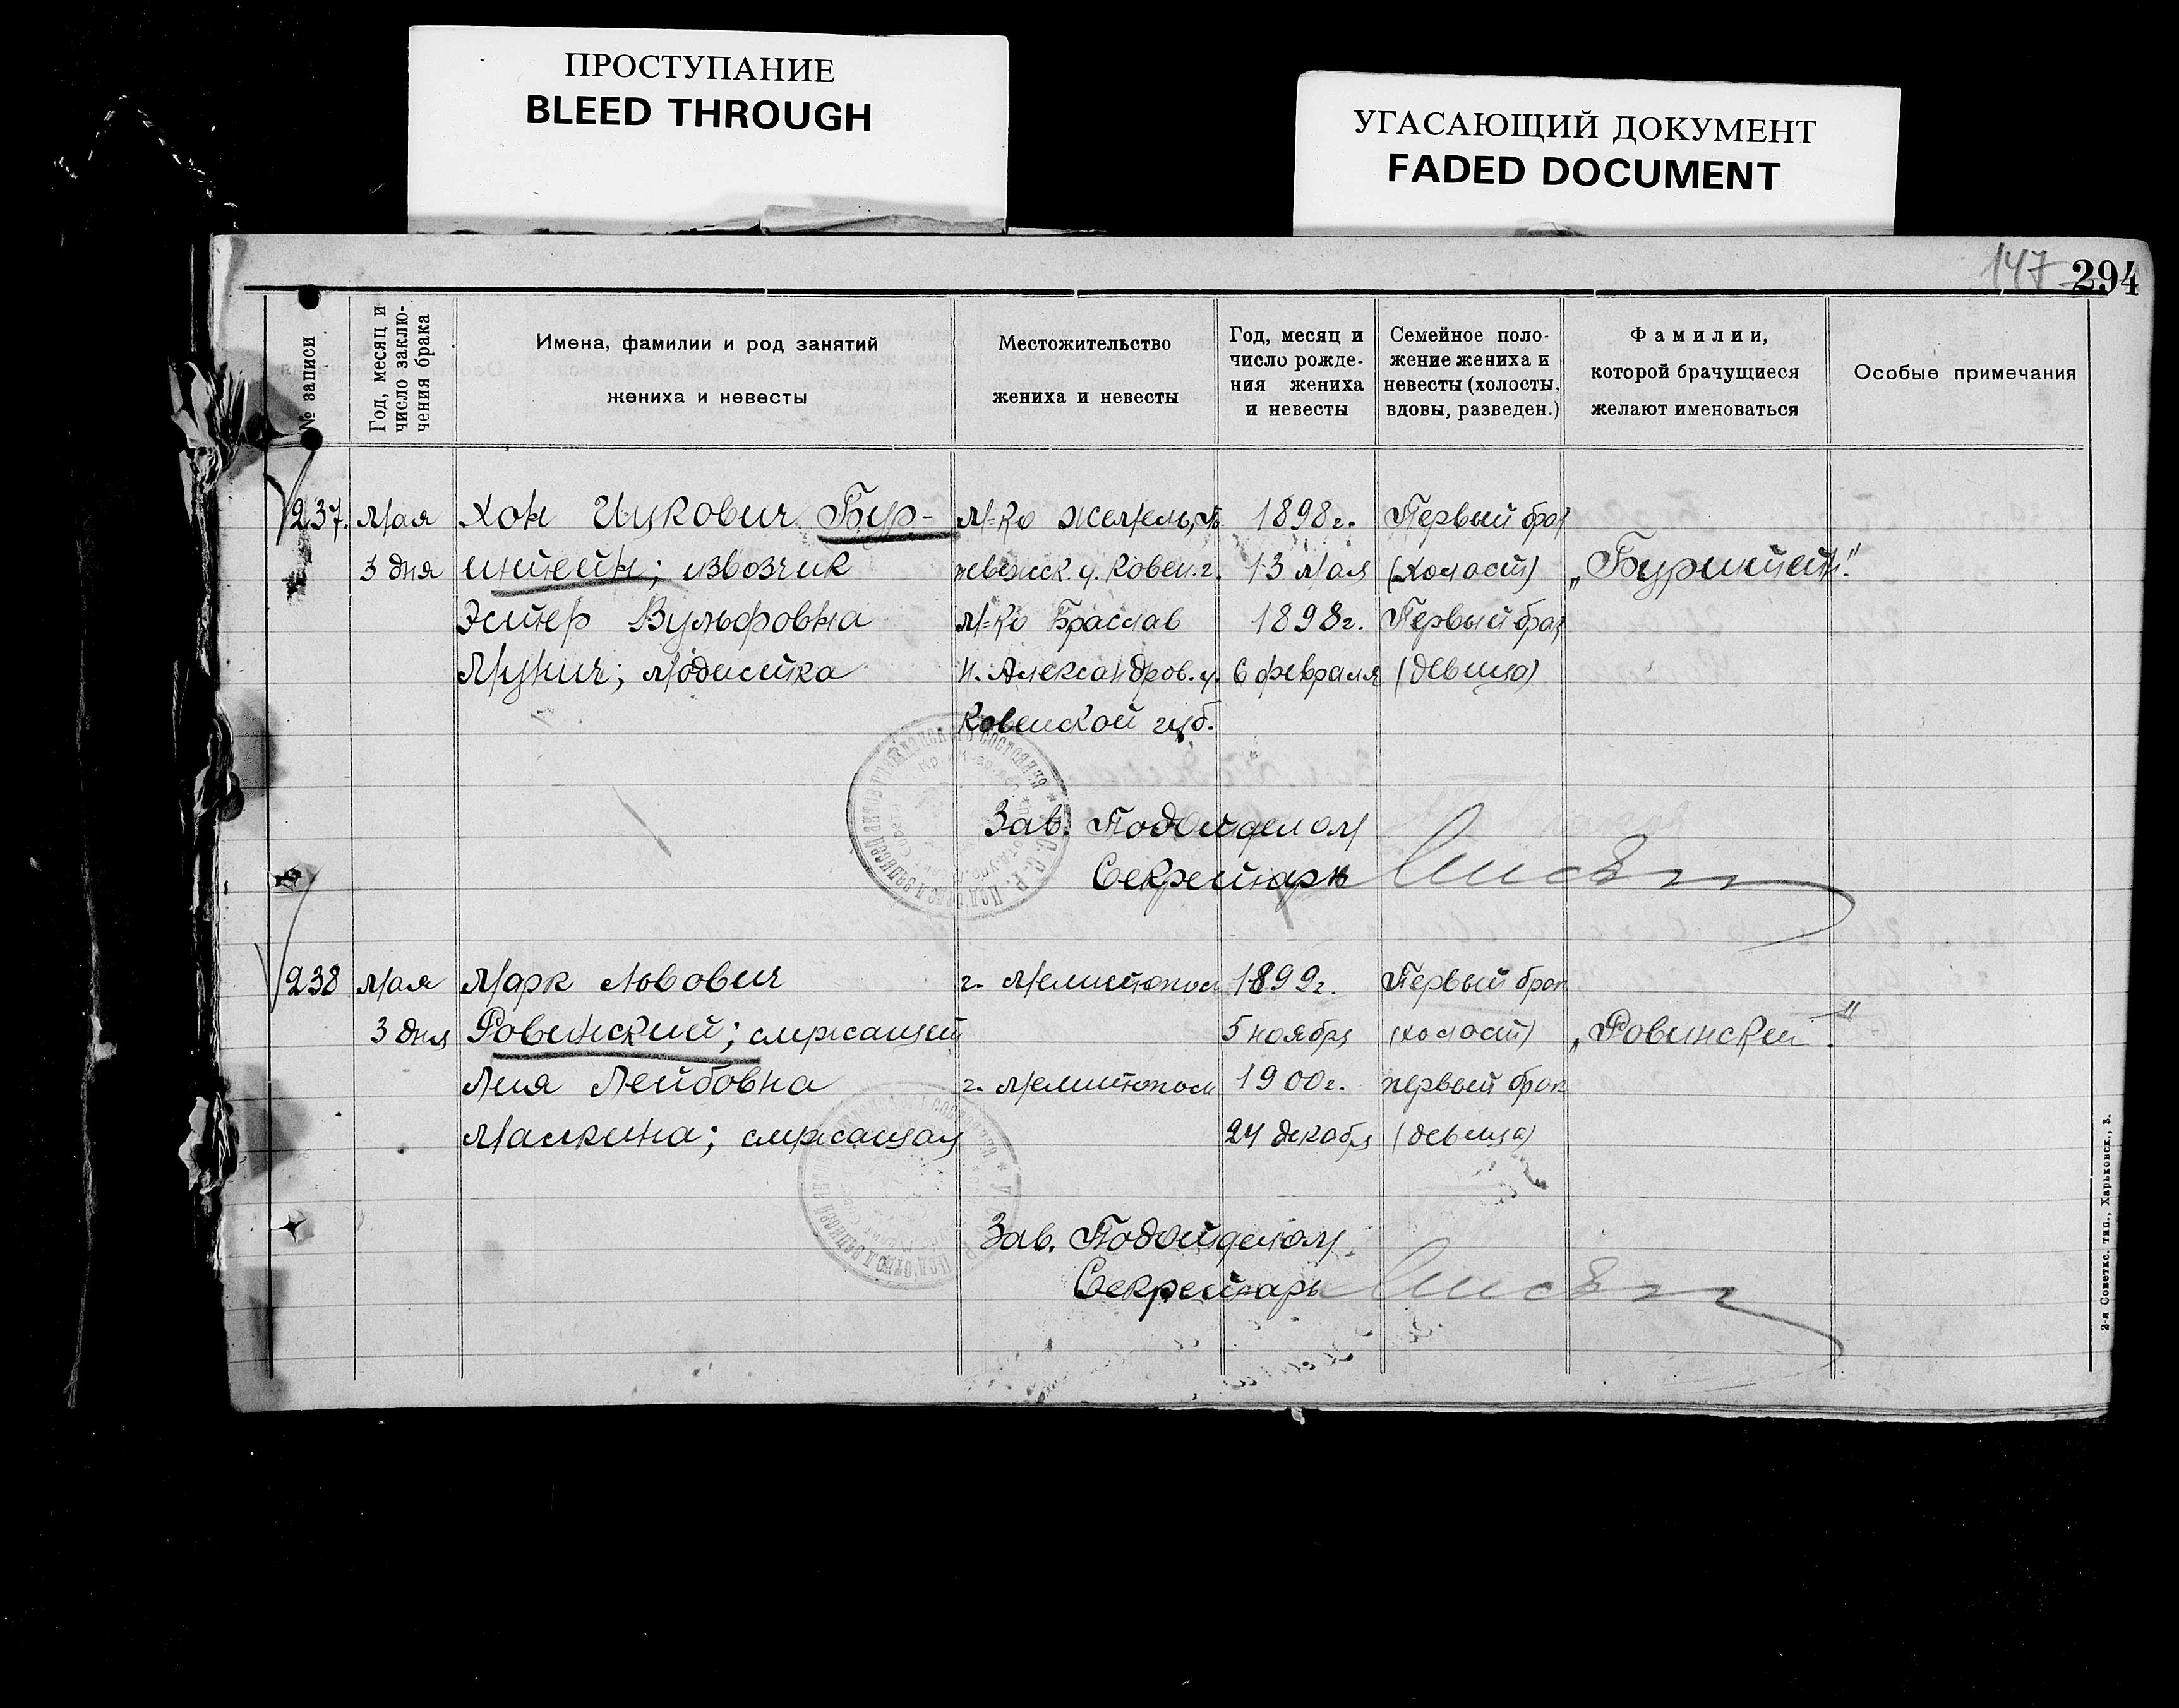 ПРОСТУПАНИЕ
BLEED THROUGH
УГАСАЮЩИЙ ДОКУМЕНТ
FADED DOCUMENT
147 294
№ записи
Год, месяц и
число заклю-
чения брака
Имена, фамилии и род занятий
жениха и невесты
Местожительство
жениха и невесты
Год, месяц и
число рожде-
ния жениха
и невесты
Семейное поло-
жение жениха и
невесты (холосты,
вдовы, разведен.)
Фамилии,
которой брачущиеся
желают именоваться
Особые примечания
237. Мая Хон Ицкович Бур- М-ко 1898 г. Первый брак
3 дня штейн; извозчик у. Ковен. г. 13 мая (холост) „Бурштейн."
Эстер Вульфовна М-ко Браслав 1898 г. Первый брак
Мунич; модистка Н. Александров. у. 6 февраля (девица)
Ковенской губ.
Зав. Подотделом
Секретарь
238 Мая Марк Львович г. Мелитополь 1899 г. Первый брак
3 дня Ровинский; служащий 5 ноября (холост) „Ровинский."
Лия Лейбовна г. Мелитополь 1900 г. первый брак
Малкина; служащая 24 декабря (девица)
Зав. Подотделом
Секретарь
2-я Советск. тип., Харьковск., 3.